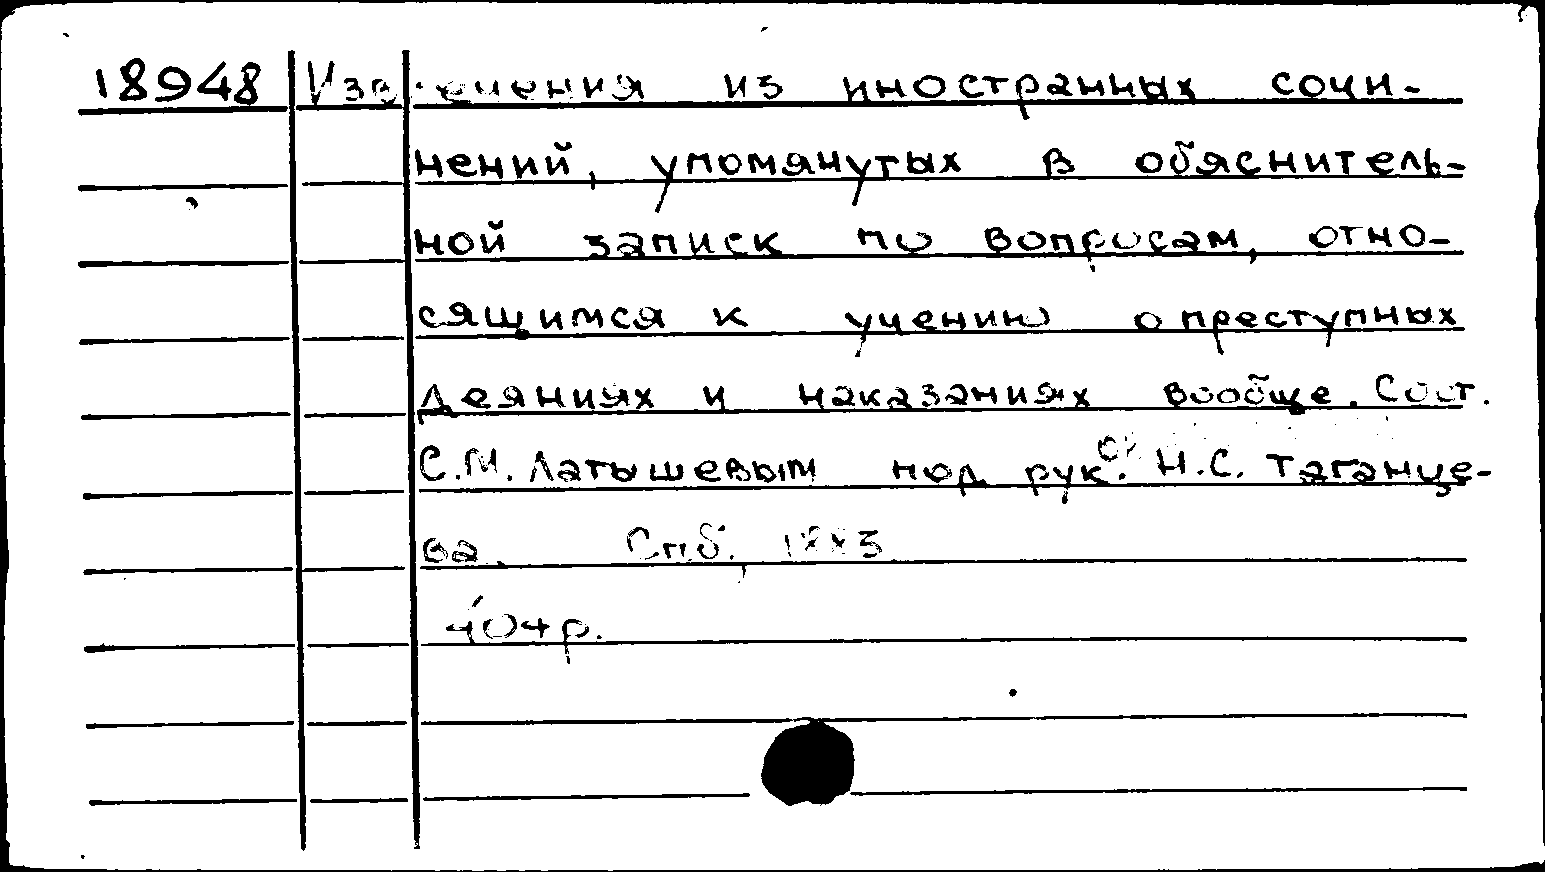 18948 Извлечения из иностранных сочи-
нений, упомянутых в обяснитель-
ной записк по вопросам, отно-
сящимся к учению о преступных
деяниях и наказаниях вообще. Сост.
С.М. Латышевым под рук. Н.С. Таганце-
ва. Спб., 1883
404 р.